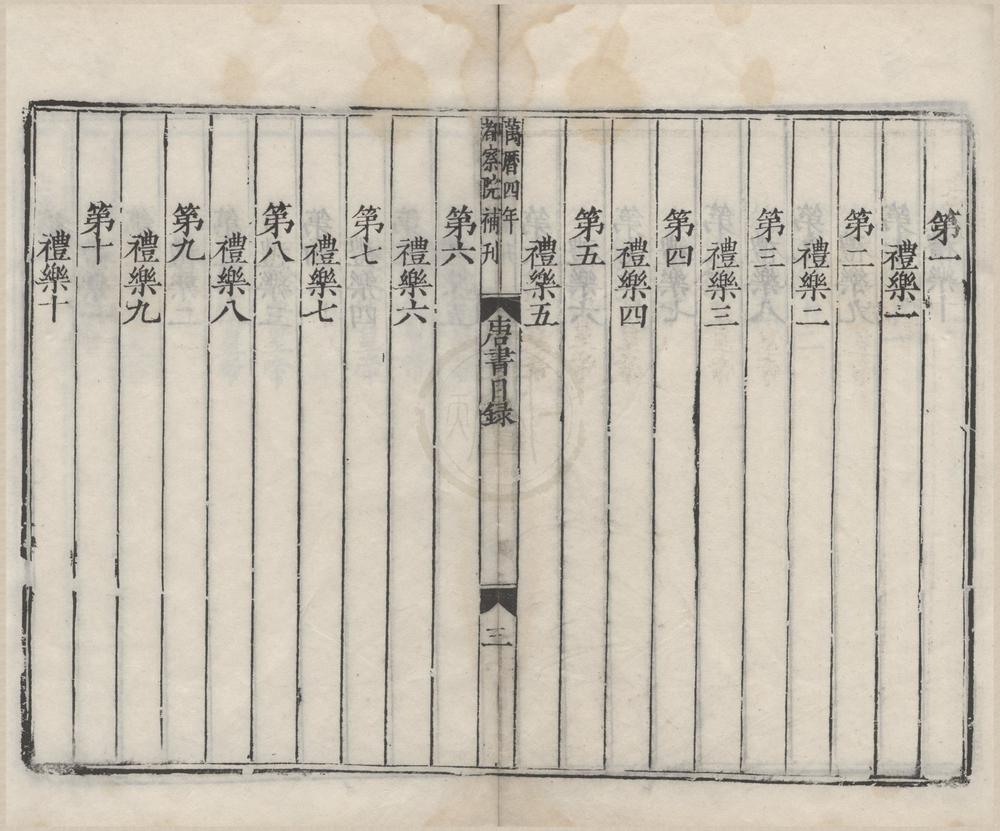 第一
禮樂一
第二
禮樂二
第三
禮樂三
第四
禮樂四
第五
禮樂五
萬曆四年
都察院補刊
唐書目録
三
第六
禮樂六
第七
禮樂七
第八
禮樂八
第九
禮樂九
第十
禮樂十